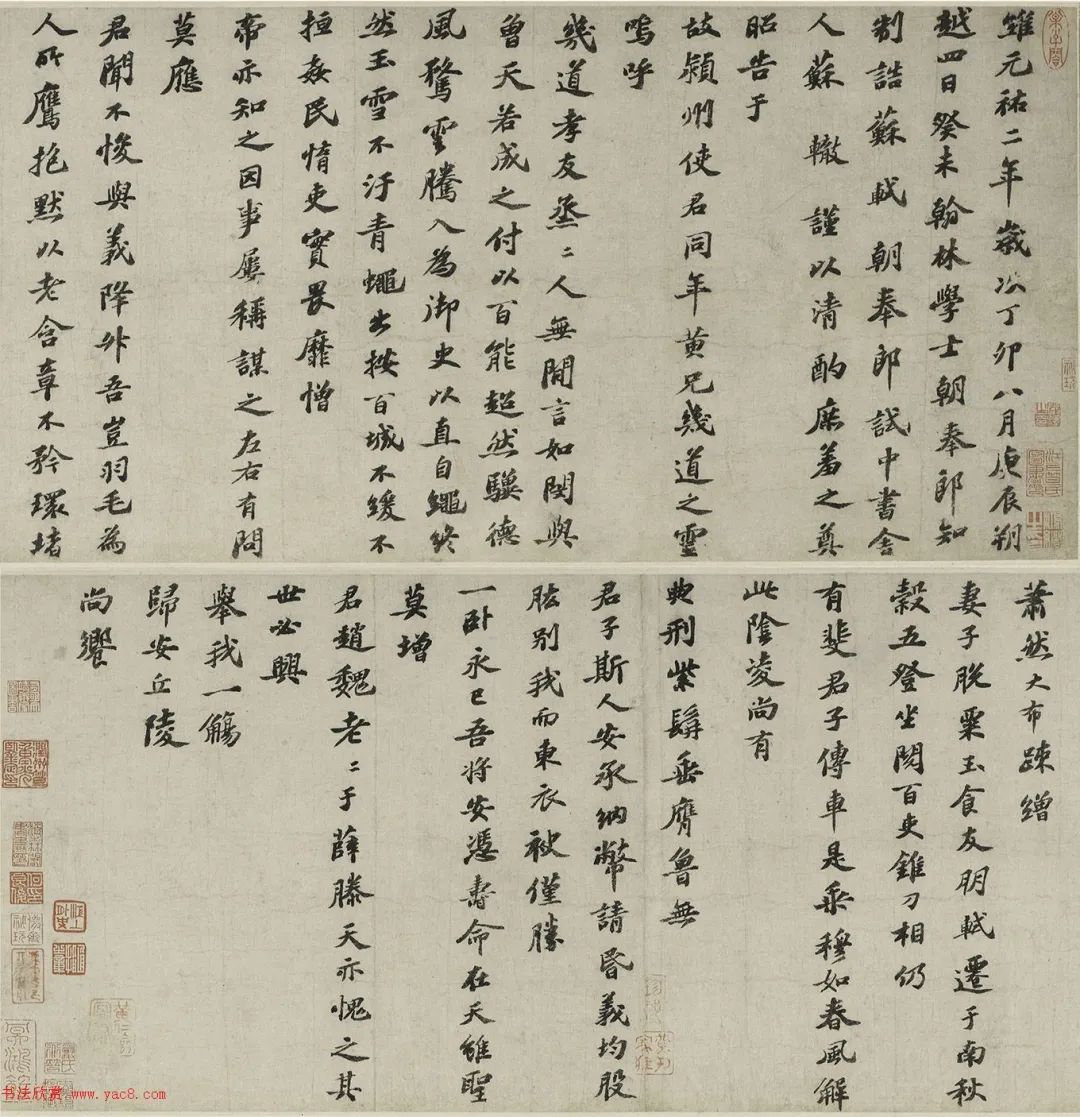 維元祐二年歲次丁卯八月庚辰朔
越四日癸未翰林學士朝奉郎知
制誥蘇軾朝奉郎試中書舍
人蘇轍謹以清酌庶羞之奠
昭告于
故潁州使君同年黃兄幾道之靈
嗚呼
幾道孝友烝二人無閒言如閔與
曾天若成之付以百能超然驥德
風騖雲騰入為御史以直自繩終
然玉雪不汙青蠅出按百城不緩不
摧姦民惰吏實畏靡憎
帝亦知之因事屢稱謀之左右有問
莫應
君聞不悛與義降升吾豈羽毛為
人所鷹抱默以老含章不矜環堵
蕭然大布疎繒
妻子脫粟玉食友朋軾遷于南秋
穀五登坐閱百吏錐刀相仍
有斐君子傳車是乘穆如春風解
此陰凌尚有
典刑紫髯垂膺魯無
君子斯人安承納幣請昏義均股
肱別我而東衣袂僅勝
一臥永已吾將安憑壽命在天雖聖
莫增
君趙魏老二于薛滕天亦愧之其
世必興
舉我一觴
歸安丘陵
尚饗
书法欣赏www.yac8.com